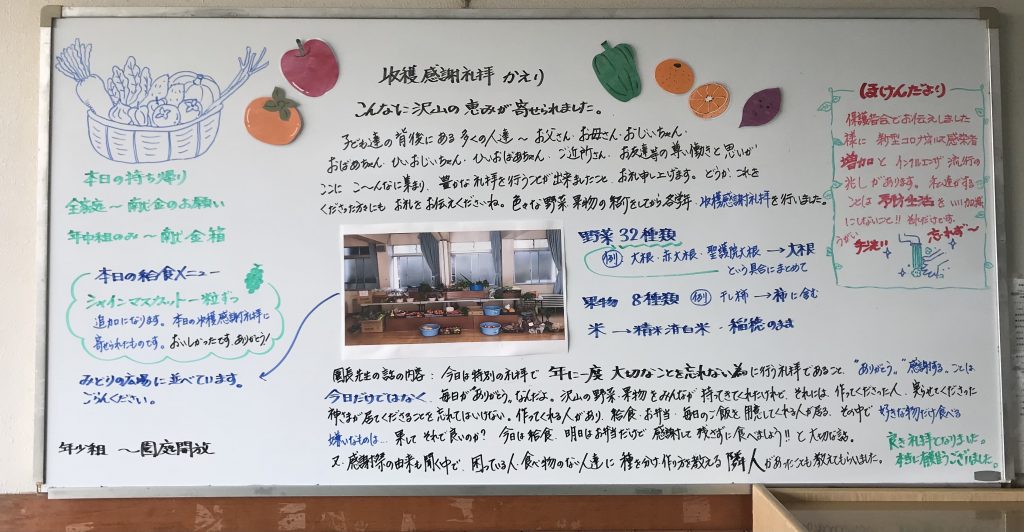 収穫感謝礼拝 かえり
こんなに沢山の恵みが寄せられました。
子ども達の背後にある多くの人達～お父さん・お母さん・おじいちゃん・
おばあちゃん・ひいおじいちゃん・ひいおばあちゃん・ご近所さん・お友達等の尊い働きと思いが
ここに こ～んなに集まり、豊かな礼拝を行うことが出来ましたこと、お礼申し上げます。どうか、これを
くださった方々にも お礼をお伝えくださいね。色々な野菜・果物の紹介をしてから各学年、収穫感謝礼拝を行いました。
本日の持ち帰り
全家庭～献金のお願い
年中組のみ～献金箱
本日の給食メニュー
シャインマスカット一粒ずつ
追加になります。本日の収穫感謝礼拝に
寄せられたものです。おいしかったです。ありがとう!
みどりの広場に並べています。
ごらんください。
年少組 ～園庭開放
野菜32種類
例 大根・赤大根・聖護院大根→大根
という具合にまとめて
果物 8種類 例 干し柿→柿に含む
米→精米済白米・稲穂のまま
園長先生の話の内容：今日は特別の礼拝で 年に一度 大切なことを忘れない為に行う礼拝であること、"ありがとう。""感謝する。"ことは、
今日だけではなく、毎日が"ありがとう。"なんだよ。沢山の野菜・果物をみんなが持ってきてくれたけれど、それには、作ってくださった人、実らせてくださった
神さまが居てくださることを忘れてはいけない。作ってくれる人があり、給食・お弁当・毎日のご飯を用意してくれる人が居る。その中で 好きな物だけ食べる
嫌いなものは… 果して それで良いのか? 今日は給食、明日はお弁当だけど 感謝して残さずに食べましょう!!と大切な話。
又、感謝祭の由来も聞く中で、困っている人・食べ物のない人達に 種を分け・作り方を教える 隣人があったことも教えてもらいました。
良き礼拝となりました。
本当に有難うございました。
ほけんだより
保護者会でお伝えしました
様に 新型コロナウイルス感染者
増加と インフルエンザ流行の
兆しがあります。私達ができる
ことは 予防生活を いい加減
にしないこと!! それだけです。
うがい
手洗い
忘れず～